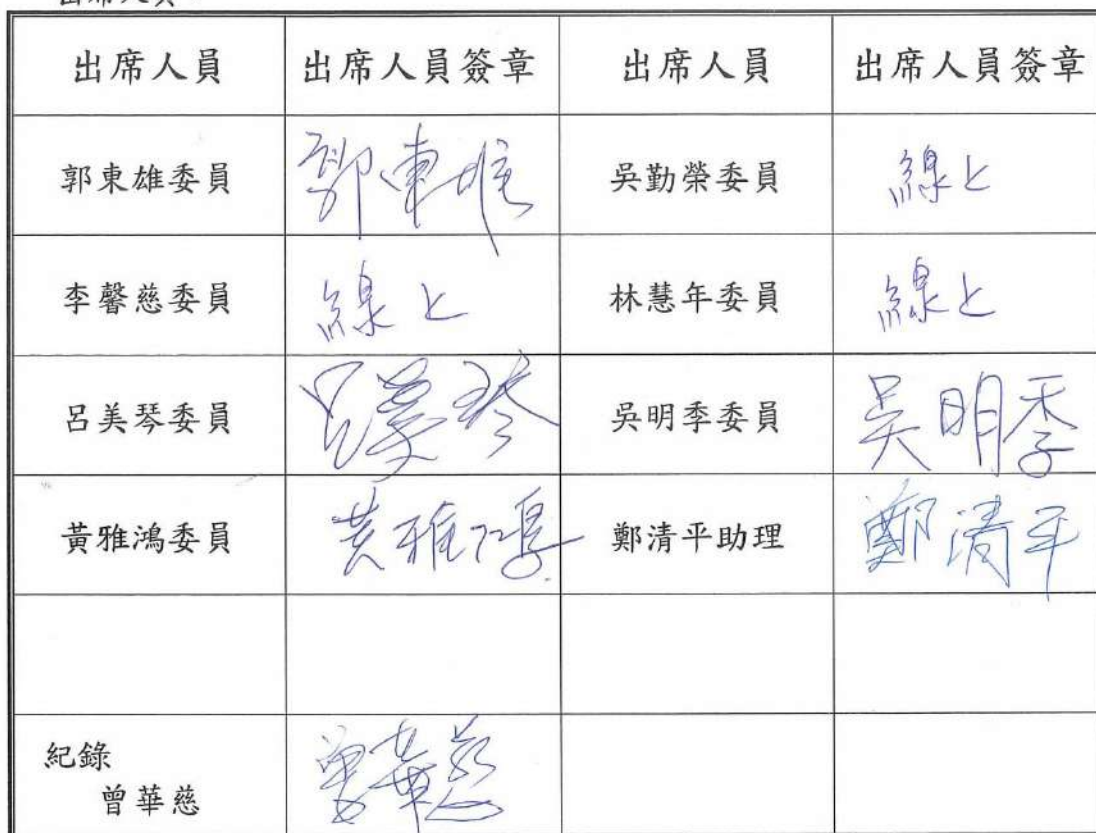 出席人員
出席人員 出席人員簽章 出席人員 出席人員簽章
郭東雄委員 郭東雄 吳勤榮委員 線上
李馨慈委員 線上 林慧年委員 線上
呂美琴委員 呂美琴 吳明季委員 吳明季
黃雅鴻委員 黃雅鴻 鄭清平助理 鄭清平
紀錄
曾華慈 曾華慈